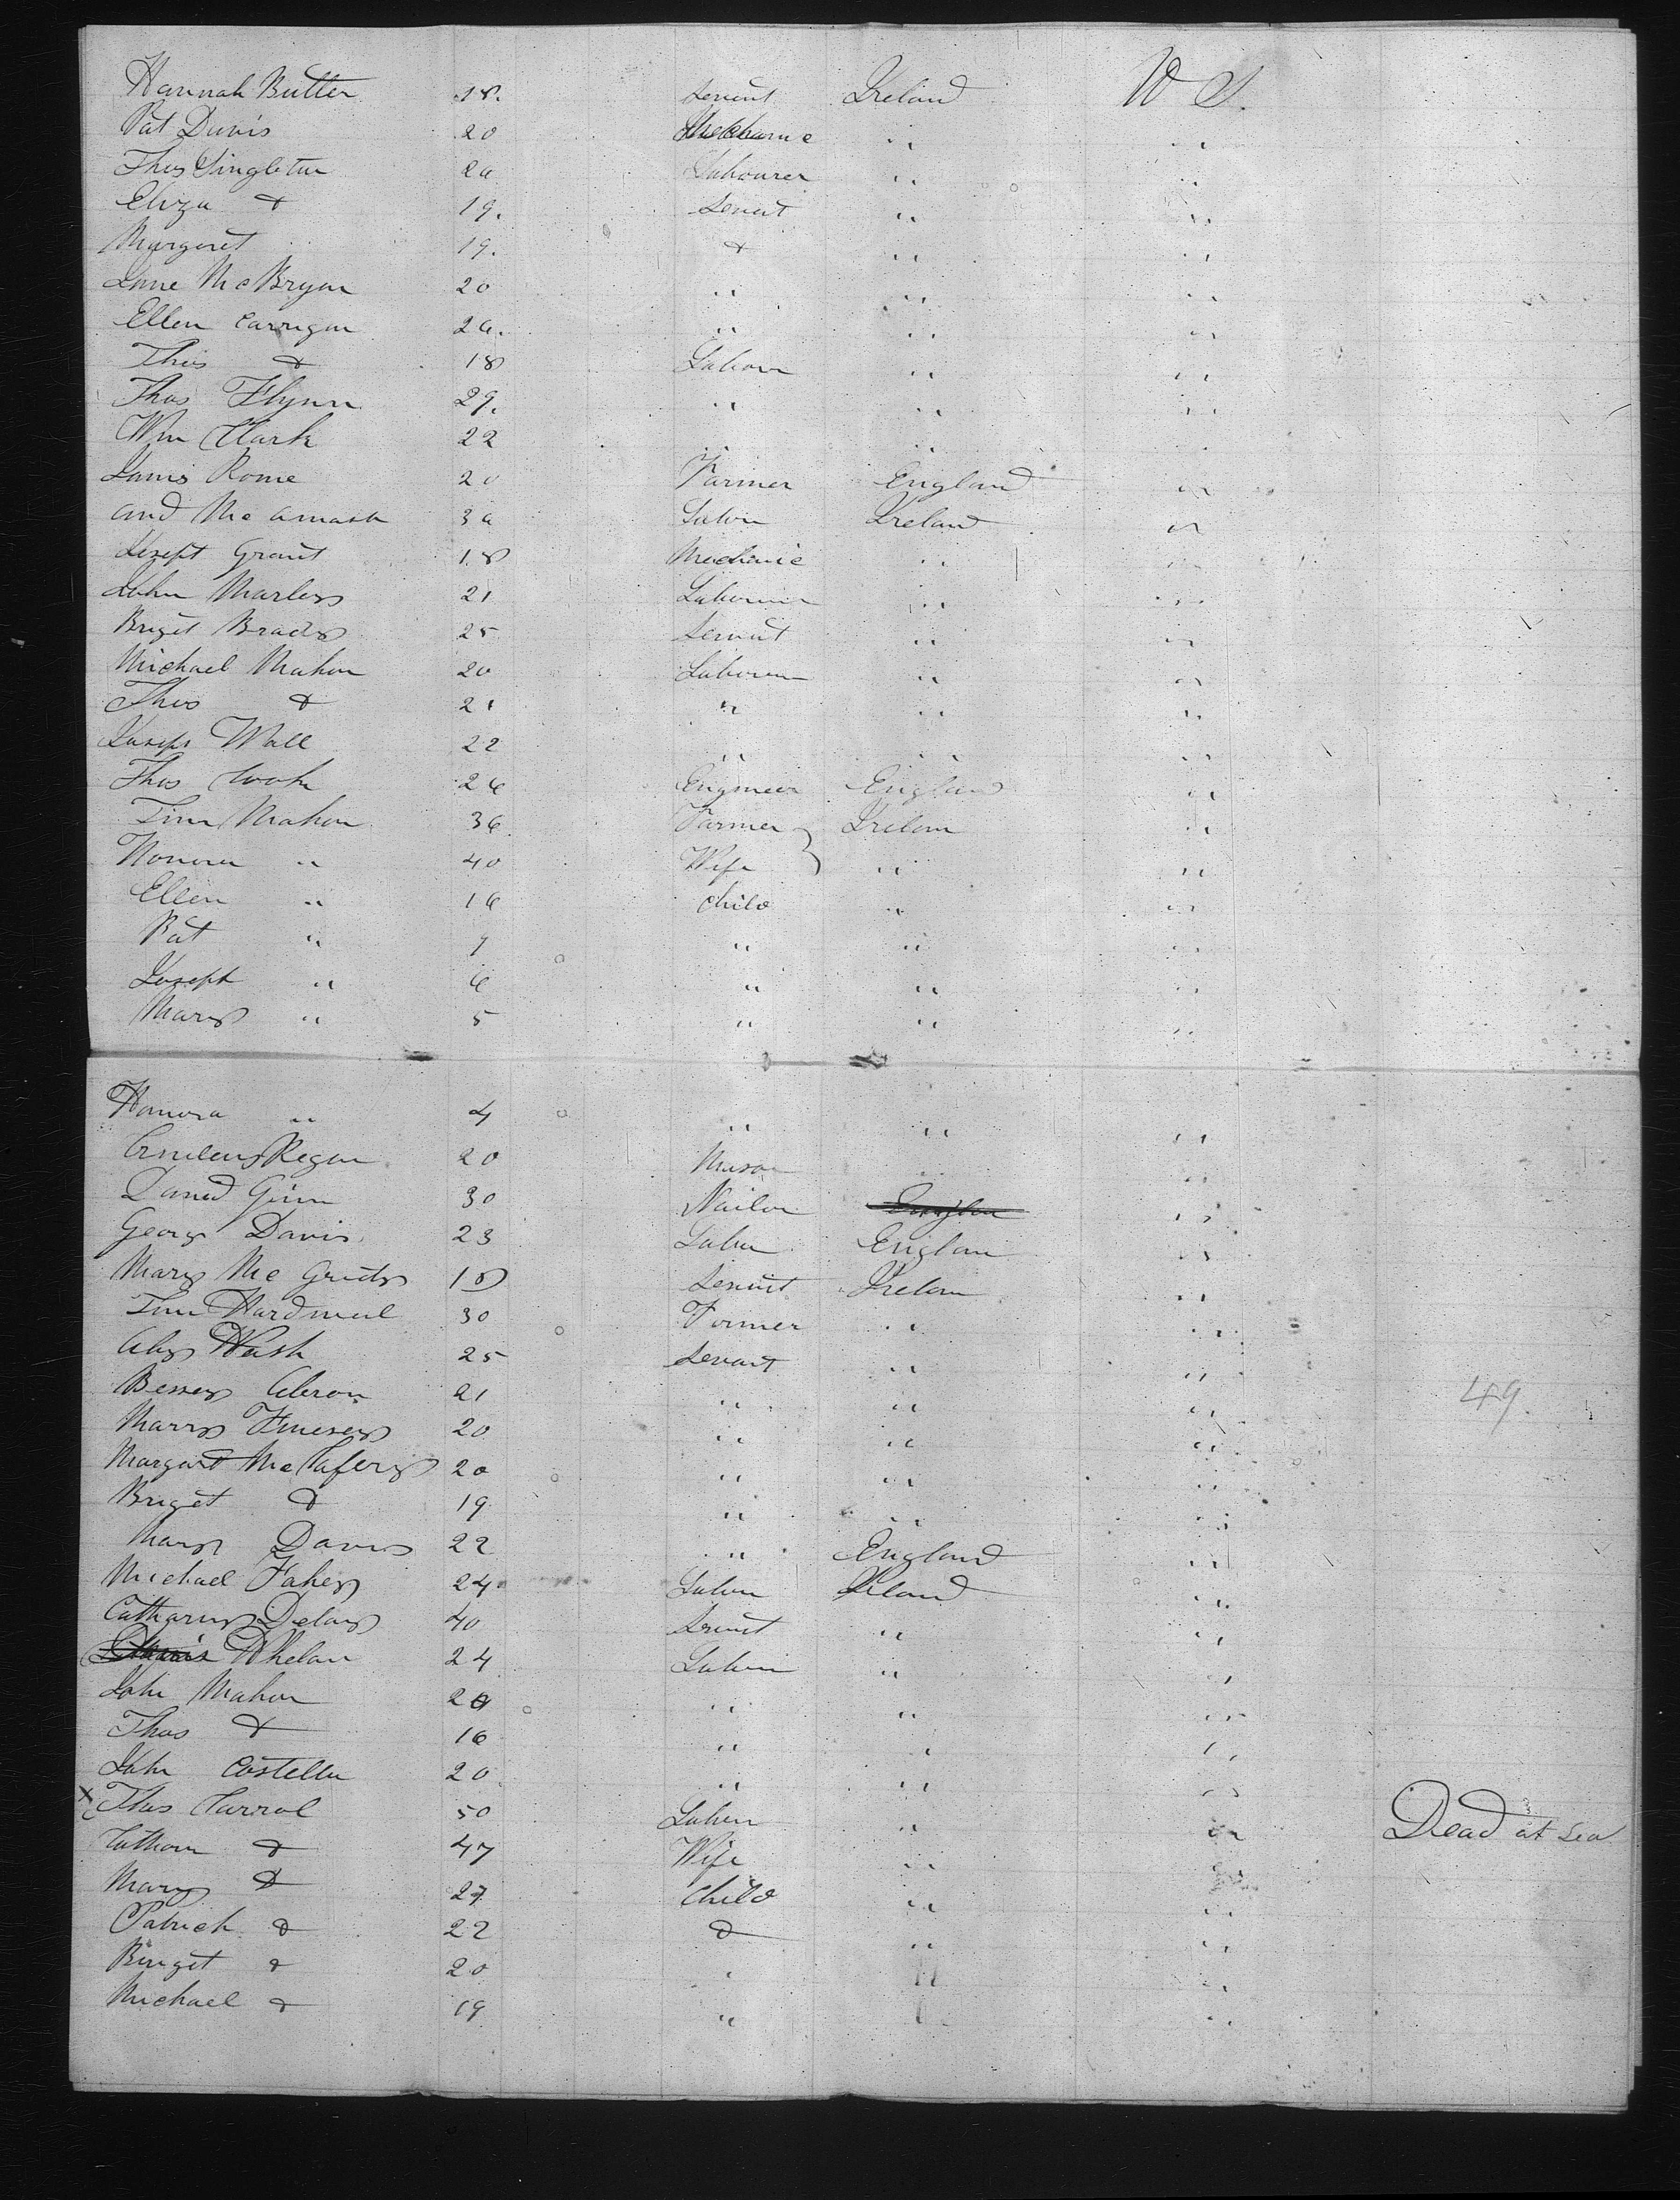 Hannah Butter 18. Servent Ireland U S.
Pat Davis 20 Mechanic " "
Thos Singleton 20 Labourer " "
Eliza do 19. Servent " "
Margaret " 19. do " "
Jane McBryan 20 " " "
Ellen Carrigan 20. " " "
Thos do 18 Labour " "
Thos Flynn 29. " " "
Wm Clark 22 " " "
James Rome 20 Farmer England "
and Mc 30 Labor Ireland "
Joseph Grant 18 Mechanic " "
John Marley 21 Labourer " "
Briget Brady 25 Servent " "
Michael Mahon 20 Labourer " "
Thos do 21 " " "
Joseph Wall 22 " " "
Thos Cook 26 Engineer England "
Tim Mahon 36 Farmer Irelan "
Honora " 40 Wife " "
Ellen " 16 Child " "
Pat " 9 " " "
Joseph " 6 " " "
Mary " 5 " " "
Honora " 4 " " "
Regan 20 Mason "
Ginn 30 Nailor "
George Davis 23 Labor Englan "
Mary Mc 18 Servent Irelan "
Tim 30 Farmer " "
25 Servant " "
Bessey 21 " " " 49.
Mary 20 " " "
Margaret McCafery 20 " " "
Briget do 19 " " "
Mary Davis 22 " England "
Michael Fahey 24 Labor Ireland "
Delay 40 Servent " "
Whelan 24 Labor " "
John Mahon 20 " " "
Thos do 16 " " "
John Costello 20 " " "
x Thos Carrol 50 Labor " " Dead at Sea
do 47 Wife " "
Mary do 27 Child " "
Patrick do 22 do " "
Briget do 20 " " "
Michael do 19 " "